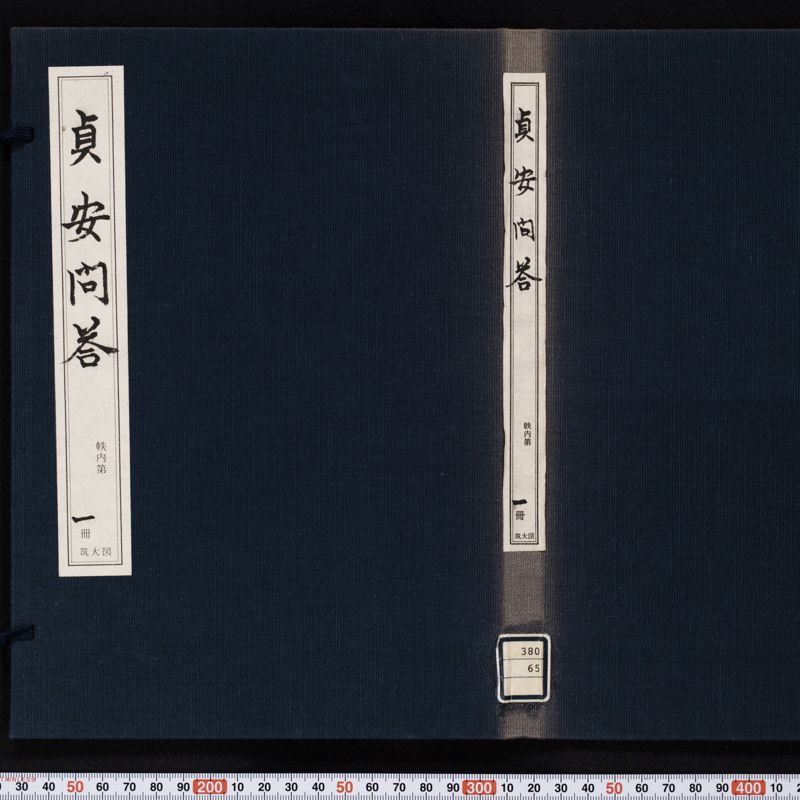 貞安問答
帙内第
一冊
筑大図
貞安問答
帙内第
一冊
筑大図
380
65
STAINLESS
30 40 50 60 70 80 90 200 10 20 30 40 50 60 70 80 90 300 10 20 30 40 50 60 70 80 90 400 10